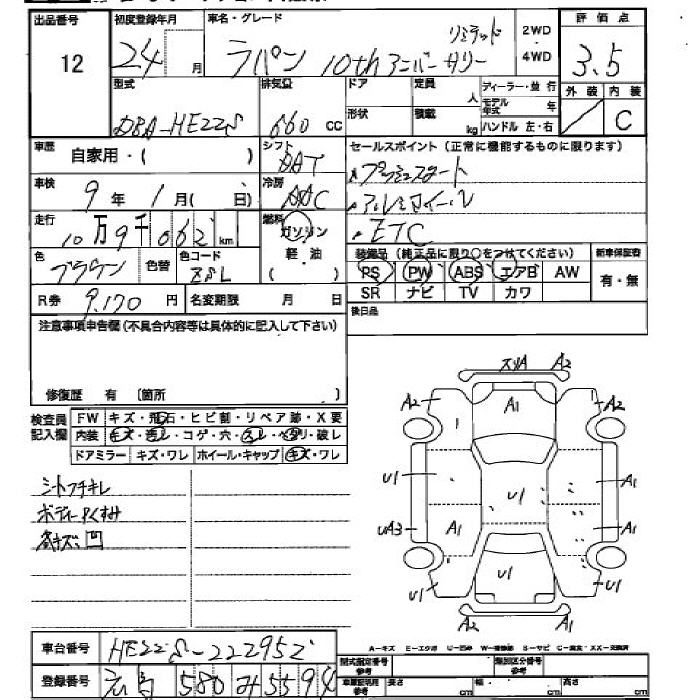 出品番号 初度登録年月 車名・グレード 評価点
12 24 月 ラパン 10th アニバーサリー リミテッド 2WD 4WD 3.5
型式 排気量 ドア 定員 人 ディーラー・並行 外装 内装
DBA-HE22S 660 CC 形状 積載 kg モデル年式 年 ハンドル 左・右 C
車歴 自家用・( ) シフト DAT セールスポイント(正常に機能するものに限ります)
車検 9年 1月( 日) 冷房 AAC プッシュスタート
アルミホイール
走行 10万9千062 km 燃料 ガソリン 軽油 ( ) ETC
色 ブラウン 色替 色コード ZSL 装備品(純正品に限り○をつけてください) 新車保証書
PS PW ABS エアB AW 有・無
R券 9,170 円 名変期限 月 日 SR ナビ TV カワ
注意事項申告欄(不具合内容等は具体的に記入して下さい) 後日品
修復歴 有 〔箇所 〕
検査員記入欄 FW キズ・飛石・ヒビ割・リペア跡・X要
内装 キズ・汚レ・コゲ・穴・スレ・ヘタリ・破レ
ドアミラー キズ・ワレ ホイール・キャップ キズ・ワレ
シートフチキレ
ボディーウスくすみ
各キズ、凹
スリA A2
A2 A1 A2
1
U1 U1 A1
UA3 A1 A1
U1 U1
A2 A2
車台番号 HE22S-222952
A-キズ E-エクボ U-凹み W-補修跡 S-サビ C-腐食・XX-交換済
登録番号 広島 580 み 5594
型式指定番号 参考 類別区分番号 参考
車庫証明用 参考 長さ cm 幅 cm 高さ cm